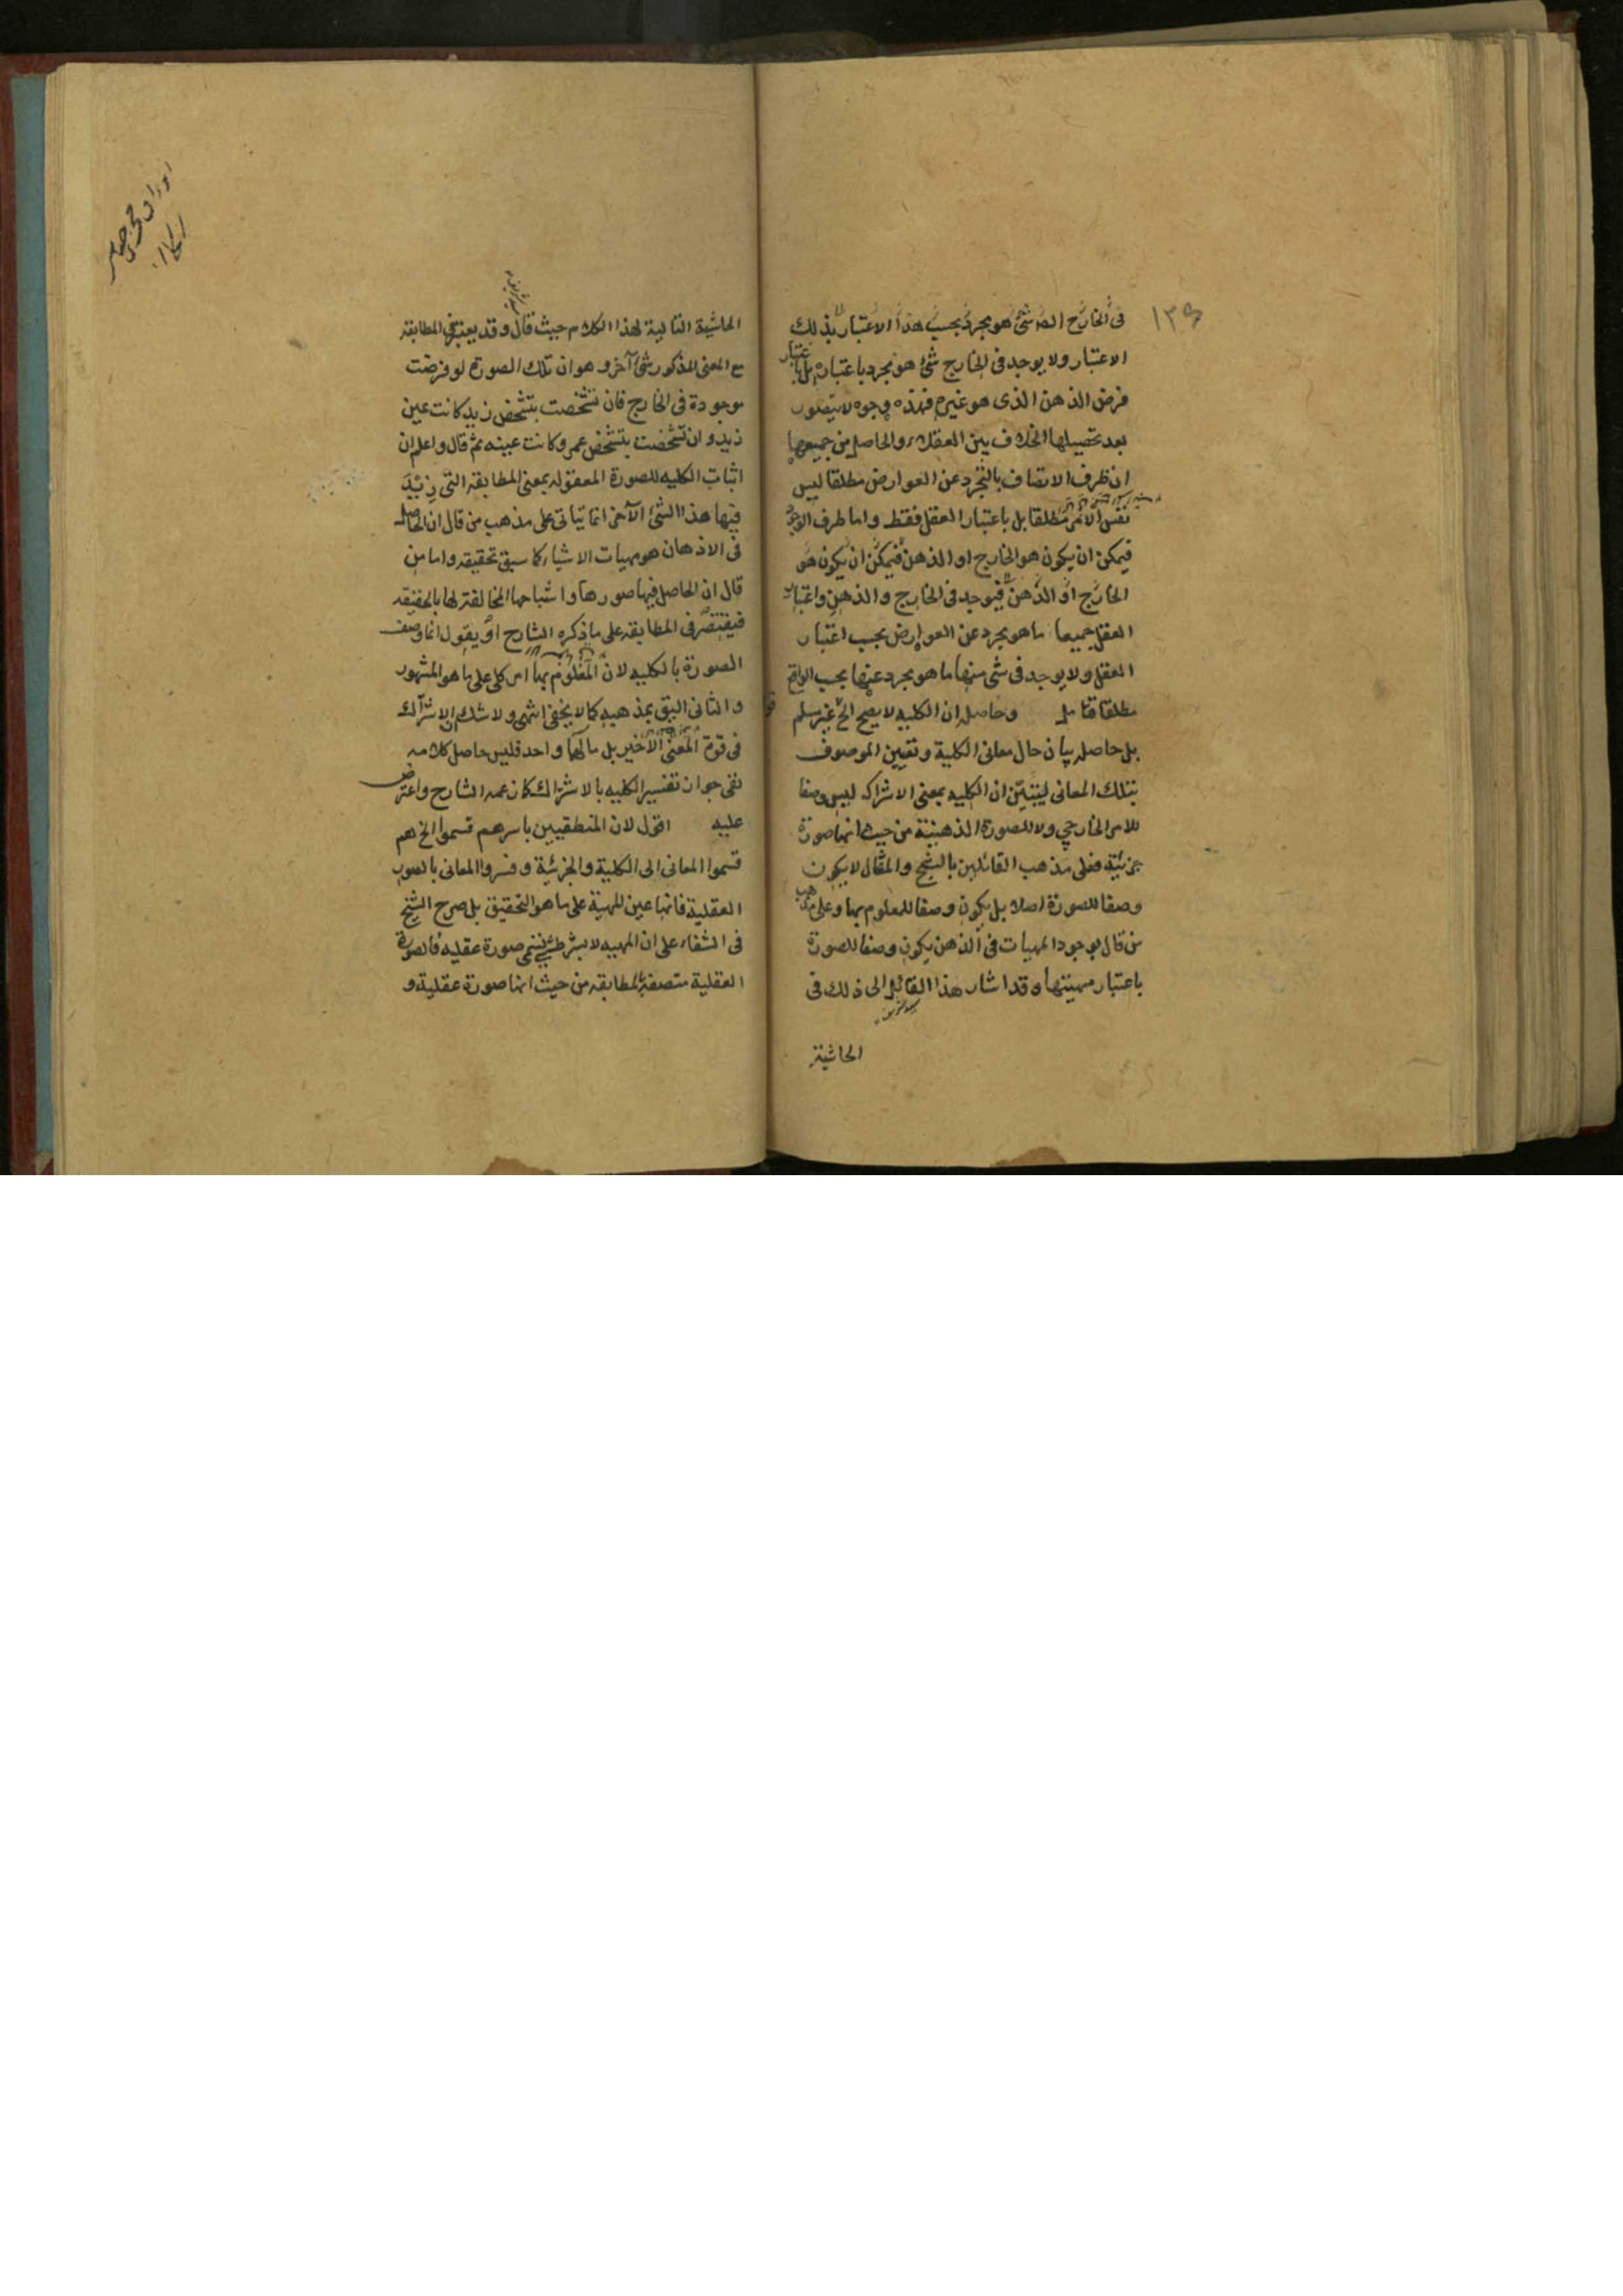 ١٣٤
فى الخارج اىضا شئ هو مجرد بحسب هذا الاعتبار بذلك
الاعتبار ولا يوجد فى الخارج شئ هو مجرد باعتباره بل باعتبار
فرض الذهن الذى هو غيره فهذه وجوه لا يتصور
بعد تحصيلها الخلاف بين العقلاء والحاصل من جميعها
ان ظرف الاتصاف بالتجرد عن العوارض مطلقا ليس
نفس الامر مطلقا بل باعتبار العقل فقط واما ظرف الوجود
فيمكن ان يكون هو الخارج او الذهن فيمكن ان يكون هو
الخارج او الذهن فيوجد فى الخارج والذهن واعتبار
العقل جميعا ما هو مجرد عن العوارض بحسب اعتبار
العقل ولا يوجد فى شئ منها ما هو مجرد عنها بحسب الواقع
مطلقا فتامل وحاصله ان الكليه لا يصح الخ غير مسلم
بل حاصله بيان حال معانى الكلية وتعيين الموصوف
بتلك المعانى ليتبين ان الكليه بمعنى الاشتراك ليس وصفا
للامر الخارجى ولا للصورة الذهنية من حيث انها صورة
جزئية فعلى مذهب القائلين بالشبح والمثال لا يكون
وصفا للصورة اصلا بل يكون وصفا للمعلوم بها وعلى مذهب
من قال بوجود المهيات فى الذهن يكون وصفا للصورة
باعتبار مهيتها وقد اشار هذا القائل الى ذلك فى
الحاشية
الحاشية التالية لهذا الكلام حيث قال وقد يعتبر فى المطابقه
مع المعنى المذكور شئ آخر وهو ان تلك الصورة لو فرضت
موجودة فى الخارج فان تشخصت بتشخص زيد كانت عين
زيد وان تشخصت بتشخص عمرو كانت عينه ثم قال واعلم ان
اثبات الكليه للصورة المعقوله بمعنى المطابقه التى زيد
فيها هذا الشئ الآخر انما يتاتى على مذهب من قال ان الحاصل
فى الاذهان هو مهيات الاشياء كما سبق تحقيقه واما من
قال ان الحاصل فيها صورها واشباحها المخالفة لها بالحقيقه
فيقتصر فى المطابقه على ما ذكره الشارح او يقول انما وصف
الصورة بالكليه لان المعلوم بها امر كلى على ما هو المشهور
والثانى اليق بمذهبه كما لا يخفى انتهى ولا شك ان الاشتراك
فى قوة المعنى الاخير بل مآلهما واحد فليس حاصل كلامه
نفى جواز تفسير الكليه بالاشتراك كما زعمه الشارح واعترض
عليه اقول لان المنطقيين باسرهم قسموا الخ هم
قسموا المعانى الى الكلية والجزئية وفسروا المعانى بالصور
العقلية فانها عين المهية على ما هو التحقيق بل صرح الشيخ
فى الشفاء على ان المهيه لا بشرط شئ هى صورة عقليه فالصورة
العقلية متصفة بالمطابقه من حيث انها صورة عقلية و